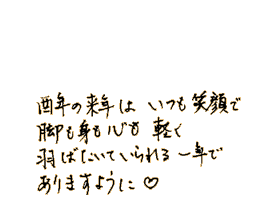 酉年の来年は いつも笑顔で
脚も身も心も 軽く
羽ばたいていられる 一年で
ありますように♡